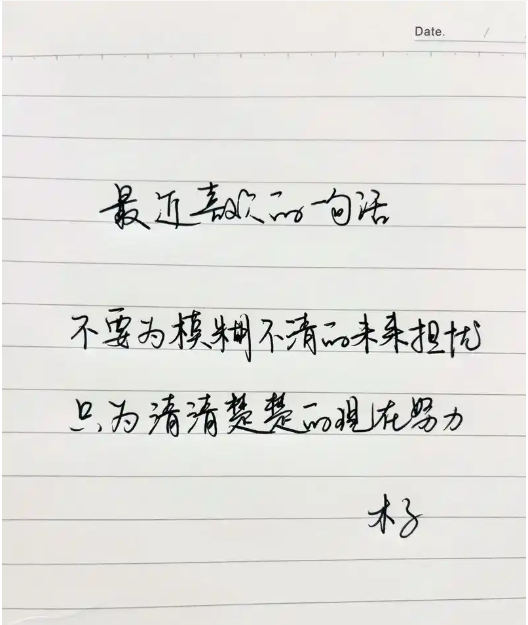 Date. / /
最近喜欢的一句话
不要为模糊不清的未来担忧
只为清清楚楚的现在努力
木子